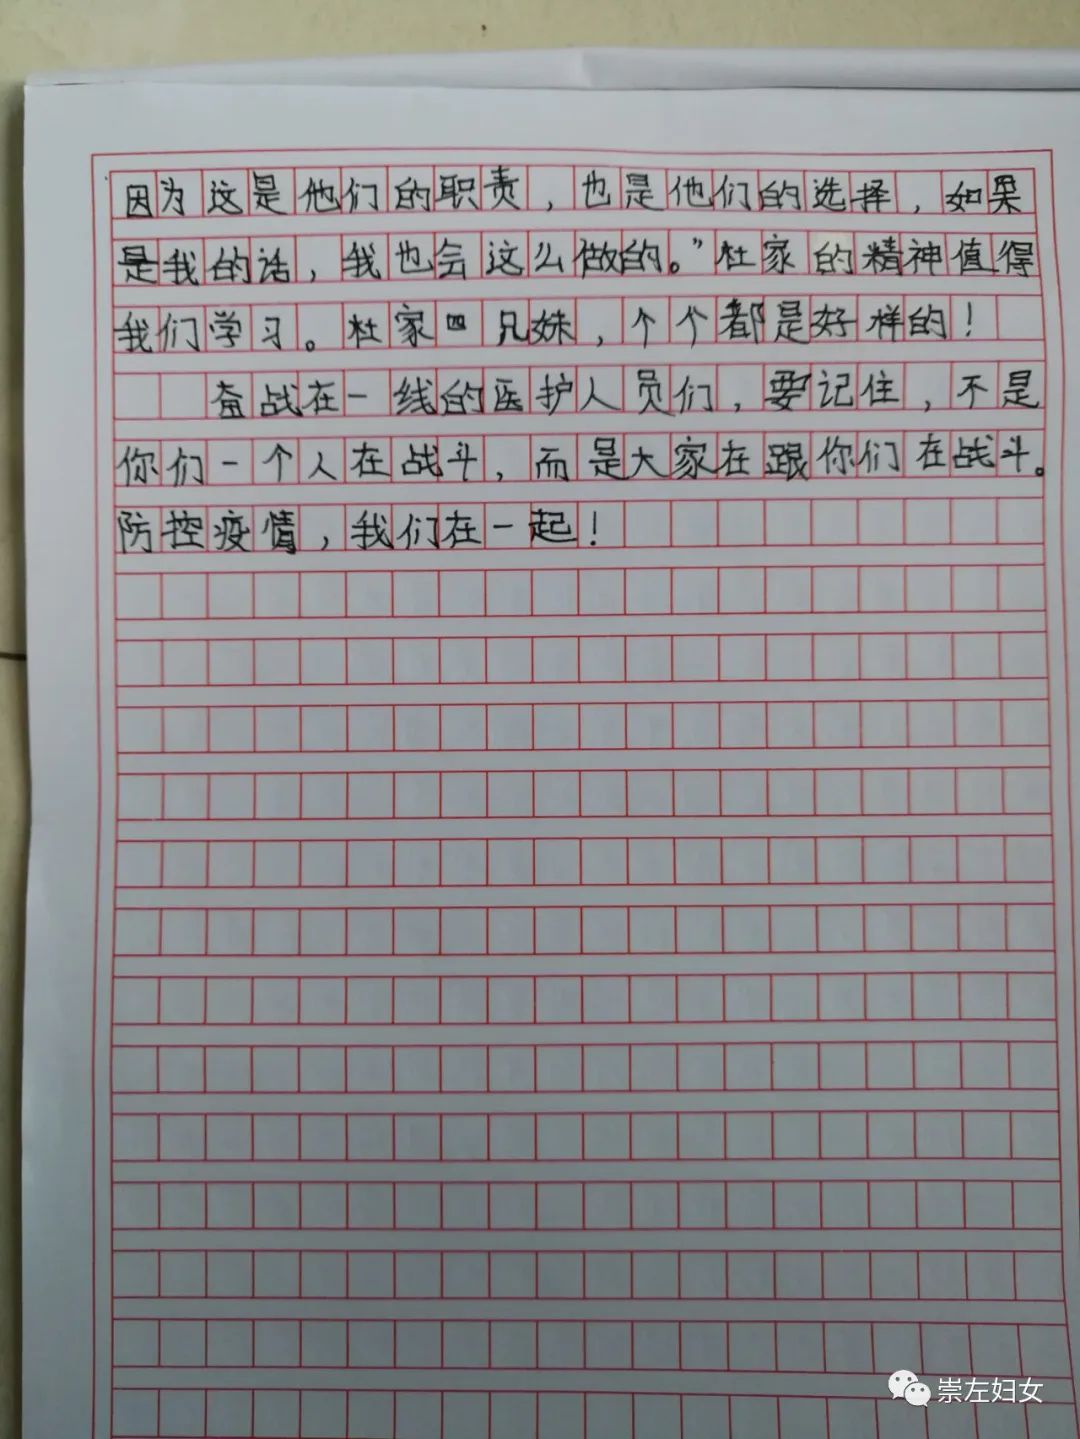 因为这是他们的职责，也是他们的选择，如果
是我的话，我也会这么做的。”杜家的精神值得
我们学习。杜家四兄妹，个个都是好样的！
奋战在一线的医护人员们，要记住，不是
你们一个人在战斗，而是大家在跟你们在战斗。
防控疫情，我们在一起！
崇左妇女